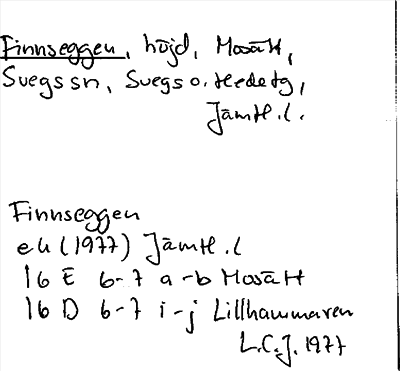 Finnseggen, höjd, Mosätt,
Svegs sn, Svegs o. Hede tg,
Jämtl. l.
Finnseggen
ek (1977) Jämtl. l
16 E 6-7 a-b Mosätt
16 D 6-7 i-j Lillhammaren
L.C.J. 1977